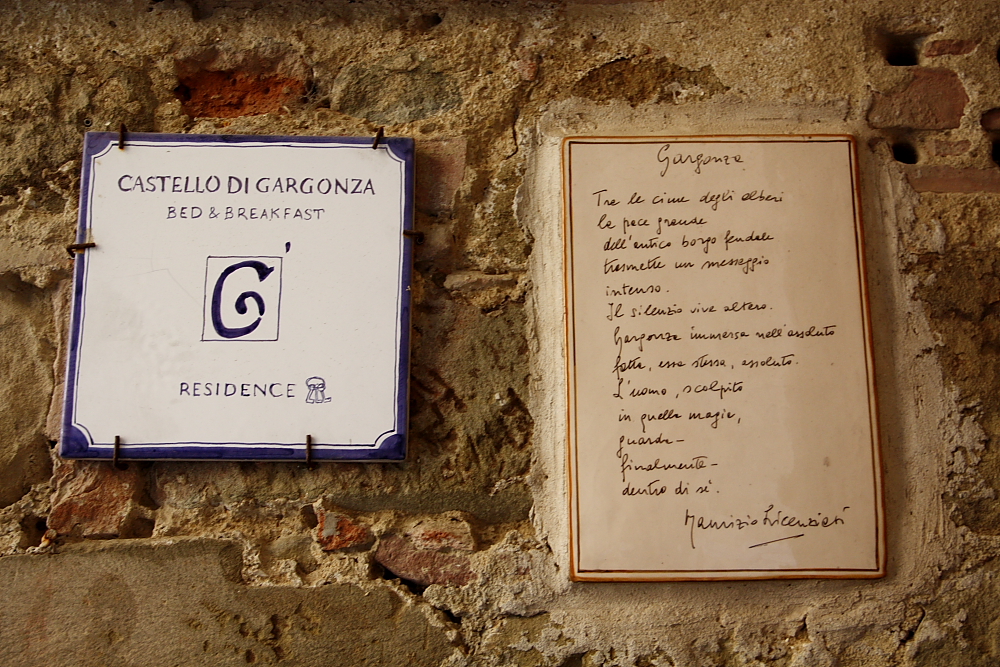 CASTELLO DI GARGONZA
BED & BREAKFAST
G'
RESIDENCE
Gargonza
Tra le cime degli alberi
la pace grande
dell'antico borgo feudale
trasmette un messaggio
intenso.
Il silenzio vive altero.
Gargonza immersa nell'assoluto
fatta, essa stessa, assoluto.
L'uomo, scolpito
in quella magia,
guarda-
finalmente-
dentro di sé.
Maurizio